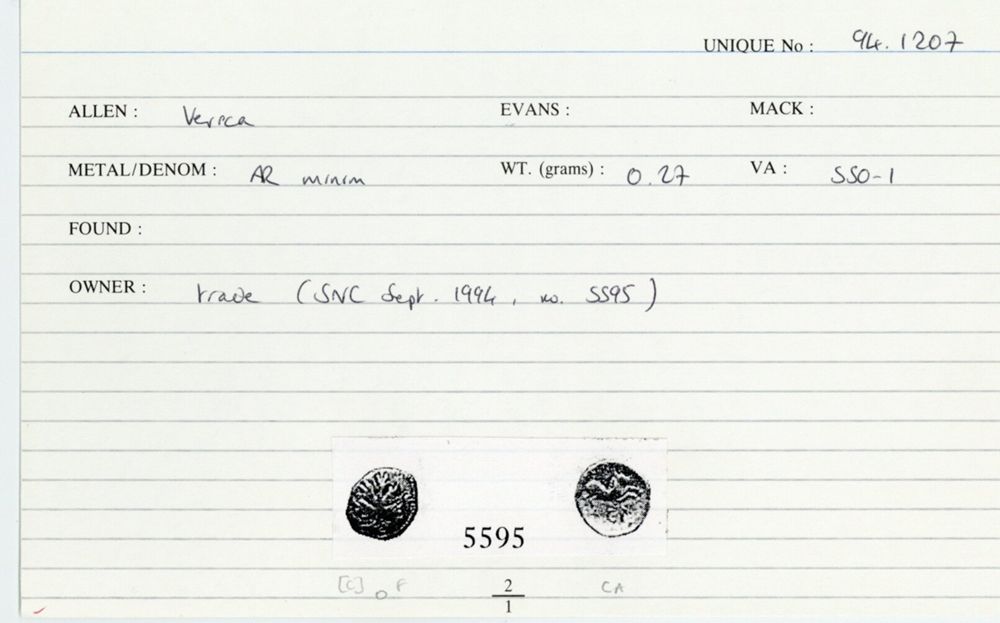 UNIQUE No : 94.1207
ALLEN : Verica EVANS : MACK :
METAL/DENOM : AR minim WT. (grams) : 0.27 VA : 550-1
FOUND :
OWNER : trade (SNC Sept. 1994, no. 5595)
5595
[C] o F 2/1 CA